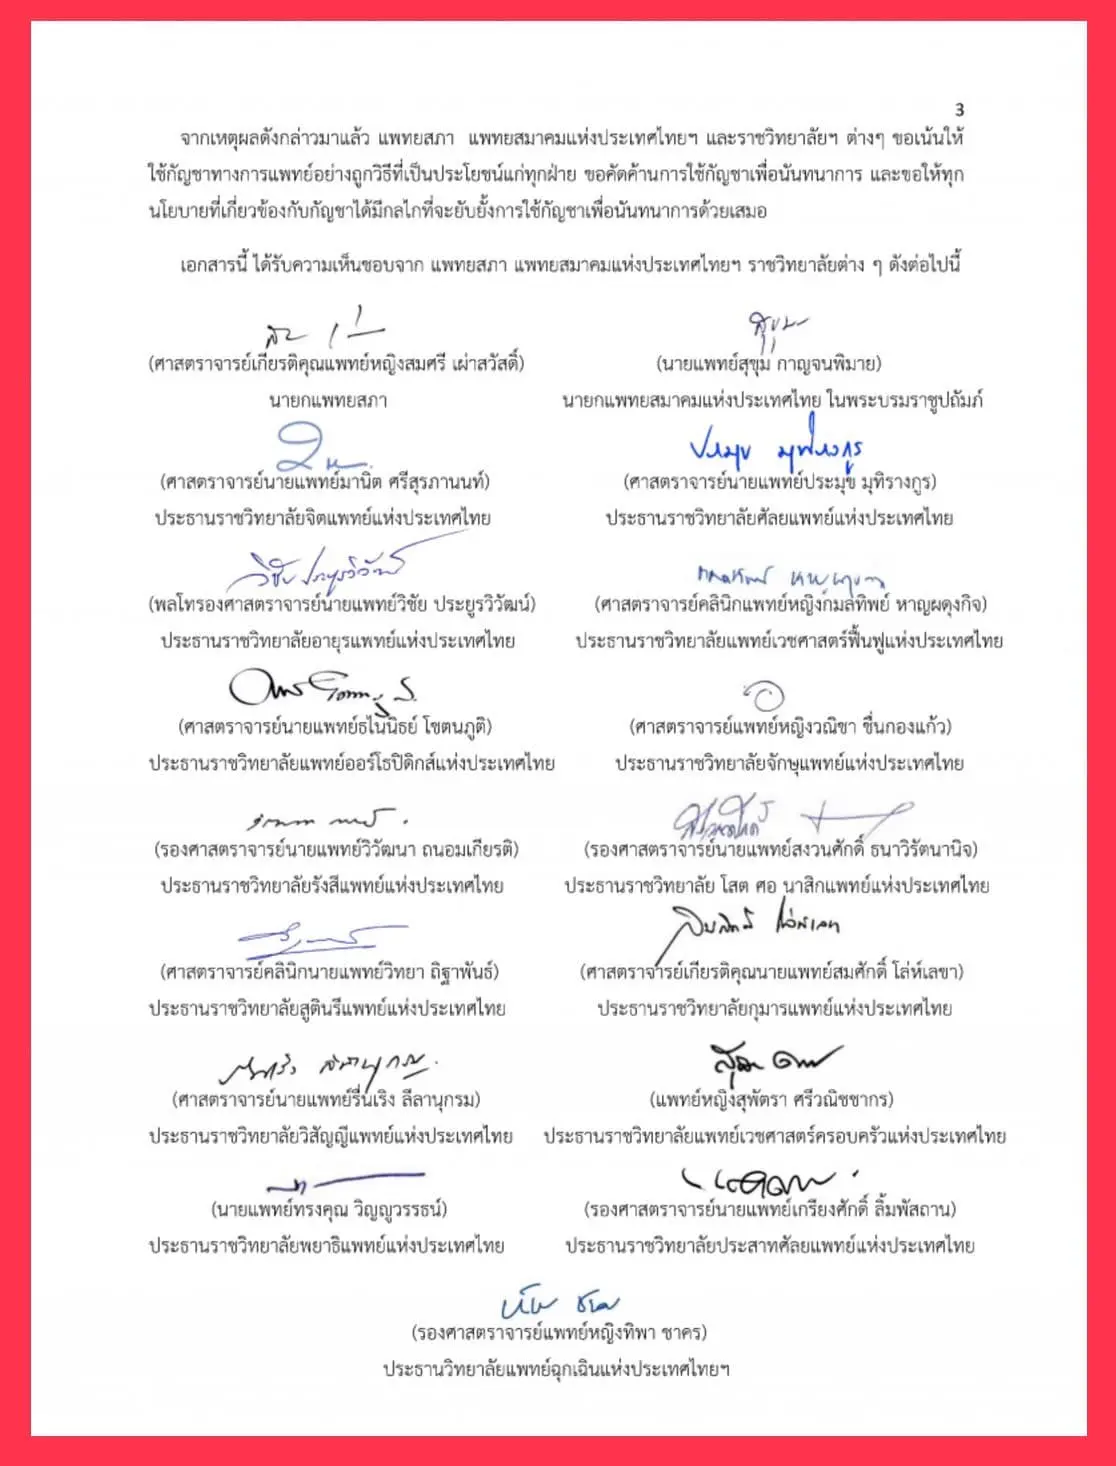 3
จากเหตุผลดังกล่าวมาแล้ว แพทยสภา แพทยสมาคมแห่งประเทศไทยฯ และราชวิทยาลัยฯ ต่างๆ ขอเน้นให้
ใช้กัญชาทางการแพทย์อย่างถูกวิธีที่เป็นประโยชน์แก่ทุกฝ่าย ขอคัดค้านการใช้กัญชาเพื่อนันทนาการ และขอให้ทุก
นโยบายที่เกี่ยวข้องกับกัญชาได้มีกลไกที่จะยับยั้งการใช้กัญชาเพื่อนันทนาการด้วยเสมอ
เอกสารนี้ ได้รับความเห็นชอบจาก แพทยสภา แพทยสมาคมแห่งประเทศไทยฯ ราชวิทยาลัยต่าง ๆ ดังต่อไปนี้
(ศาสตราจารย์เกียรติคุณแพทย์หญิงสมศรี เผ่าสวัสดิ์)
นายกแพทยสภา
(นายแพทย์สุขุม กาญจนพิมาย)
นายกแพทยสมาคมแห่งประเทศไทย ในพระบรมราชูปถัมภ์
(ศาสตราจารย์นายแพทย์มานิต ศรีสุรภานนท์)
ประธานราชวิทยาลัยจิตแพทย์แห่งประเทศไทย
ประมุข มุทิรางกูร
(ศาสตราจารย์นายแพทย์ประมุข มุทิรางกูร)
ประธานราชวิทยาลัยศัลยแพทย์แห่งประเทศไทย
วิชัย ประยูรวิวัฒน์
(พลโทรองศาสตราจารย์นายแพทย์วิชัย ประยูรวิวัฒน์)
ประธานราชวิทยาลัยอายุรแพทย์แห่งประเทศไทย
(ศาสตราจารย์คลินิกแพทย์หญิงกมลทิพย์ หาญผดุงกิจ)
ประธานราชวิทยาลัยแพทย์เวชศาสตร์ฟื้นฟูแห่งประเทศไทย
(ศาสตราจารย์นายแพทย์ธไนนิธย์ โชตนภูติ)
ประธานราชวิทยาลัยแพทย์ออร์โธปิดิกส์แห่งประเทศไทย
(ศาสตราจารย์แพทย์หญิงวณิชา ชื่นกองแก้ว)
ประธานราชวิทยาลัยจักษุแพทย์แห่งประเทศไทย
(รองศาสตราจารย์นายแพทย์วิวัฒนา ถนอมเกียรติ)
ประธานราชวิทยาลัยรังสีแพทย์แห่งประเทศไทย
(รองศาสตราจารย์นายแพทย์สงวนศักดิ์ ธนาวิรัตนานิจ)
ประธานราชวิทยาลัย โสต ศอ นาสิกแพทย์แห่งประเทศไทย
(ศาสตราจารย์คลินิกนายแพทย์วิทยา ถิฐาพันธ์)
ประธานราชวิทยาลัยสูตินรีแพทย์แห่งประเทศไทย
(ศาสตราจารย์เกียรติคุณนายแพทย์สมศักดิ์ โล่ห์เลขา)
ประธานราชวิทยาลัยกุมารแพทย์แห่งประเทศไทย
(ศาสตราจารย์นายแพทย์รื่นเริง ลีลานุกรม)
ประธานราชวิทยาลัยวิสัญญีแพทย์แห่งประเทศไทย
(แพทย์หญิงสุพัตรา ศรีวณิชชากร)
ประธานราชวิทยาลัยแพทย์เวชศาสตร์ครอบครัวแห่งประเทศไทย
(นายแพทย์ทรงคุณ วิญญูวรรธน์)
ประธานราชวิทยาลัยพยาธิแพทย์แห่งประเทศไทย
(รองศาสตราจารย์นายแพทย์เกรียงศักดิ์ ลิ้มพัสถาน)
ประธานราชวิทยาลัยประสาทศัลยแพทย์แห่งประเทศไทย
(รองศาสตราจารย์แพทย์หญิงทิพา ชาคร)
ประธานวิทยาลัยแพทย์ฉุกเฉินแห่งประเทศไทยฯ